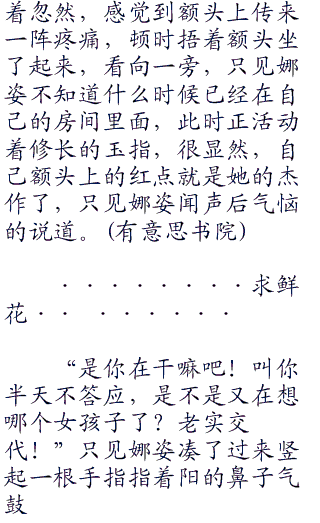 着忽然，感觉到额头上传来
一阵疼痛，顿时捂着额头坐
了起来，看向一旁，只见娜
姿不知道什么时候已经在自
己的房间里面，此时正活动
着修长的玉指，很显然，自
己额头上的红点就是她的杰
作了，只见娜姿闻声后气恼
的说道。(有意思书院)
·········求鲜
花·· ······
“是你在干嘛吧！叫你
半天不答应，是不是又在想
哪个女孩子了？老实交
代！”只见娜姿凑了过来竖
起一根手指指着阳的鼻子气
鼓